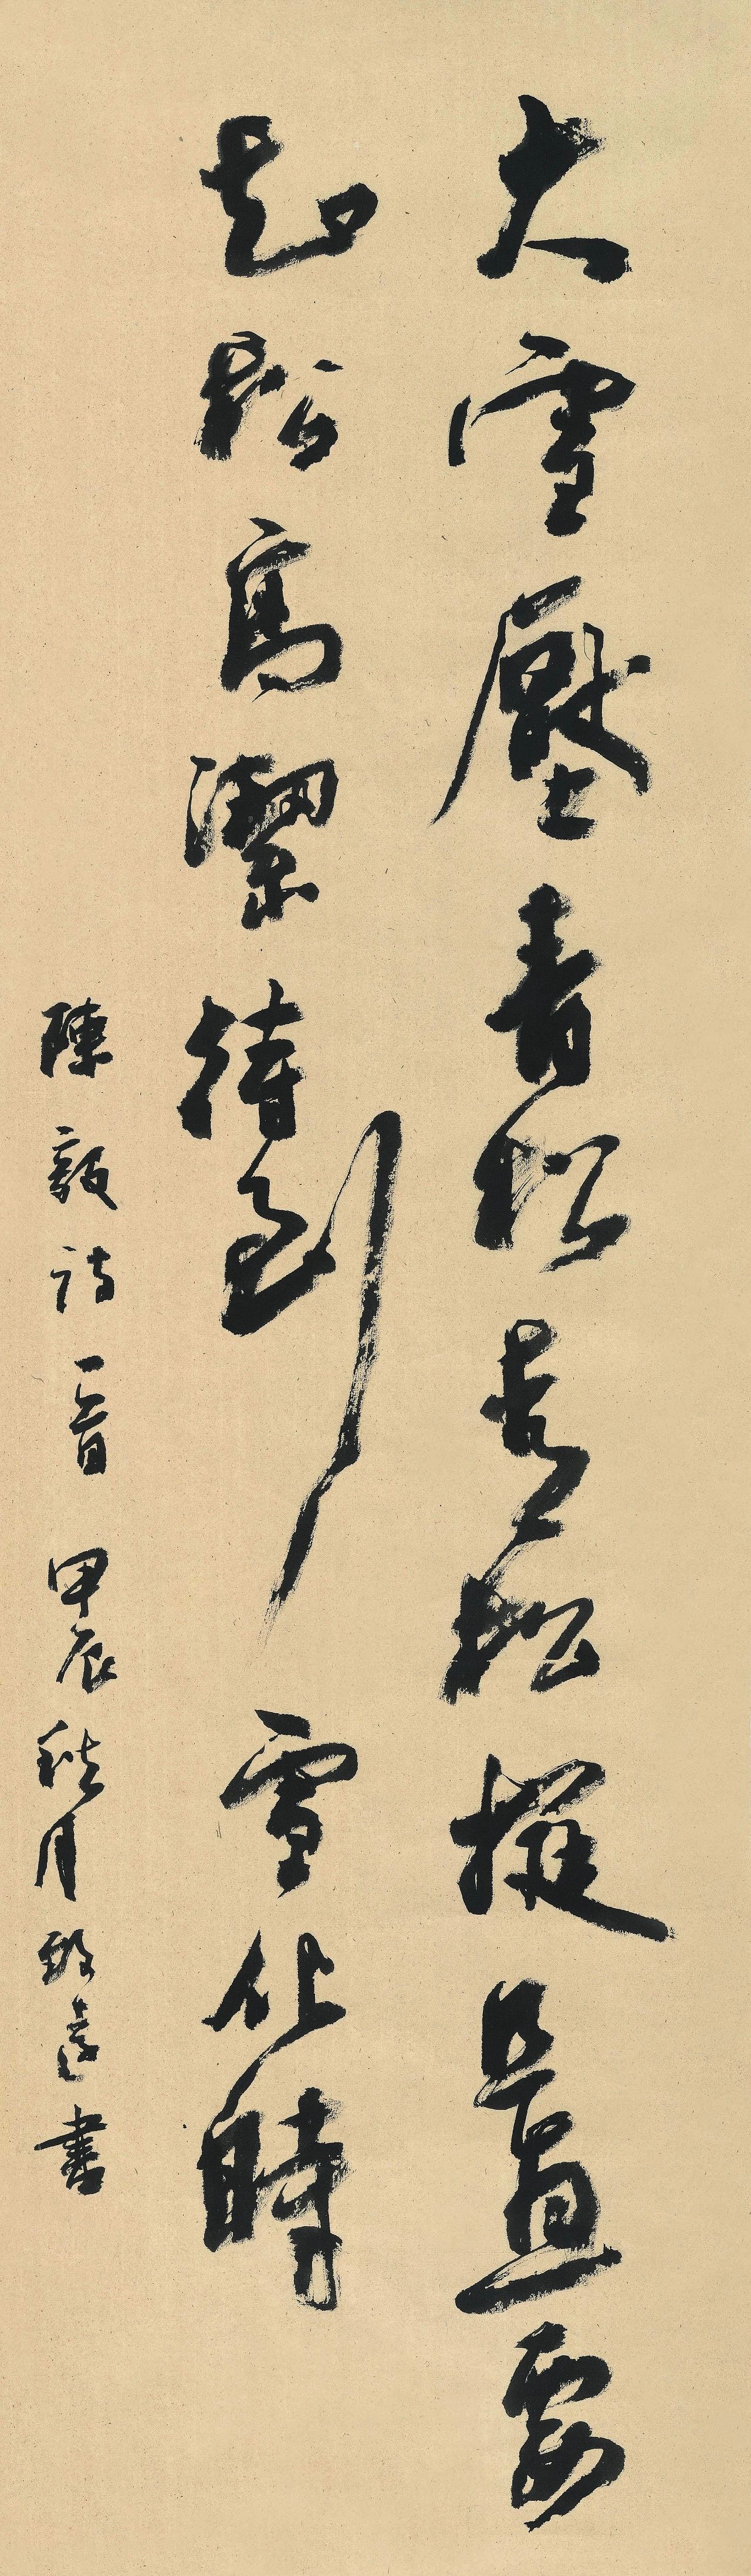 大雪壓青松青松挺且直要
知松高潔待到雪化時
陳毅詩一首 甲辰秋月 遠書